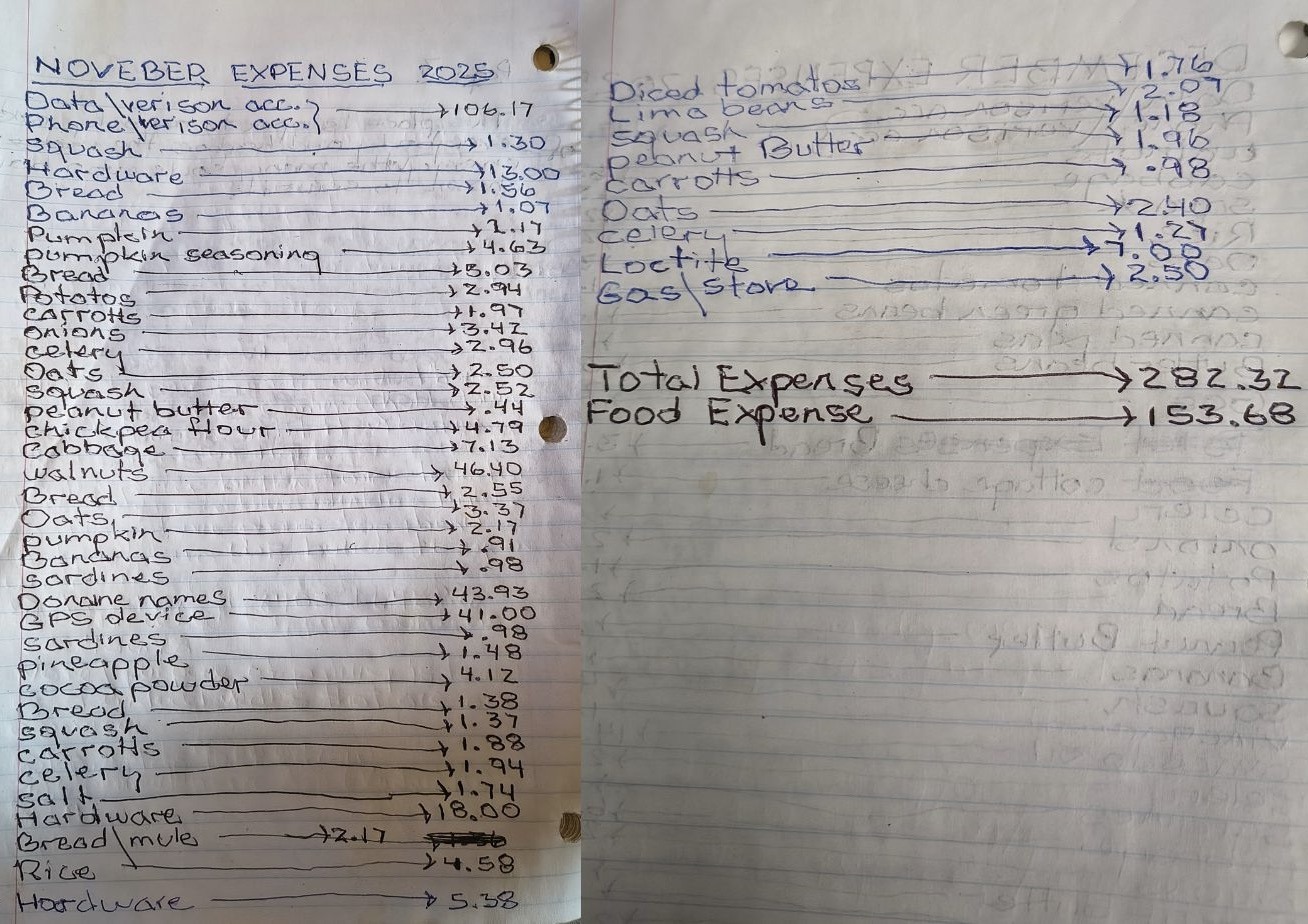 NOVEBER EXPENSES 2025
Data\verison acc.} → 106.17
Phone\verison acc.}
squash → 1.30
Hardware → 13.00
Bread → 1.56
Bananas → 1.07
Pumpkin → 2.17
pumpkin seasoning → 4.63
Bread → 5.03
Pototos → 2.94
carrotts → 1.97
onions → 3.42
celery → 2.96
Oats → 2.50
squash → 2.52
peanut butter → .44
chickpea flour → 4.79
cabbage → 7.13
walnuts → 46.40
Bread → 2.55
Oats → 3.37
pumpkin → 2.17
Bananas → .91
sardines → .98
Domine names → 43.93
GPS device → 41.00
sardines → .98
pineapple → 1.48
cocoa powder → 4.12
Bread → 1.38
squash → 1.37
carrotts → 1.88
celery → 1.94
salt → 1.74
Hardware → 18.00
Bread\mule → 2.17
Rice → 4.58
Hardware → 5.38
Diced tomatos → 1.76
Lima beans → 2.07
squash → 1.18
peanut Butter → 1.96
carrotts → .98
Oats → 2.40
celery → 1.27
Loctite → 7.00
Gas\Store → 2.50
Total Expenses → 282.32
Food Expense → 153.68